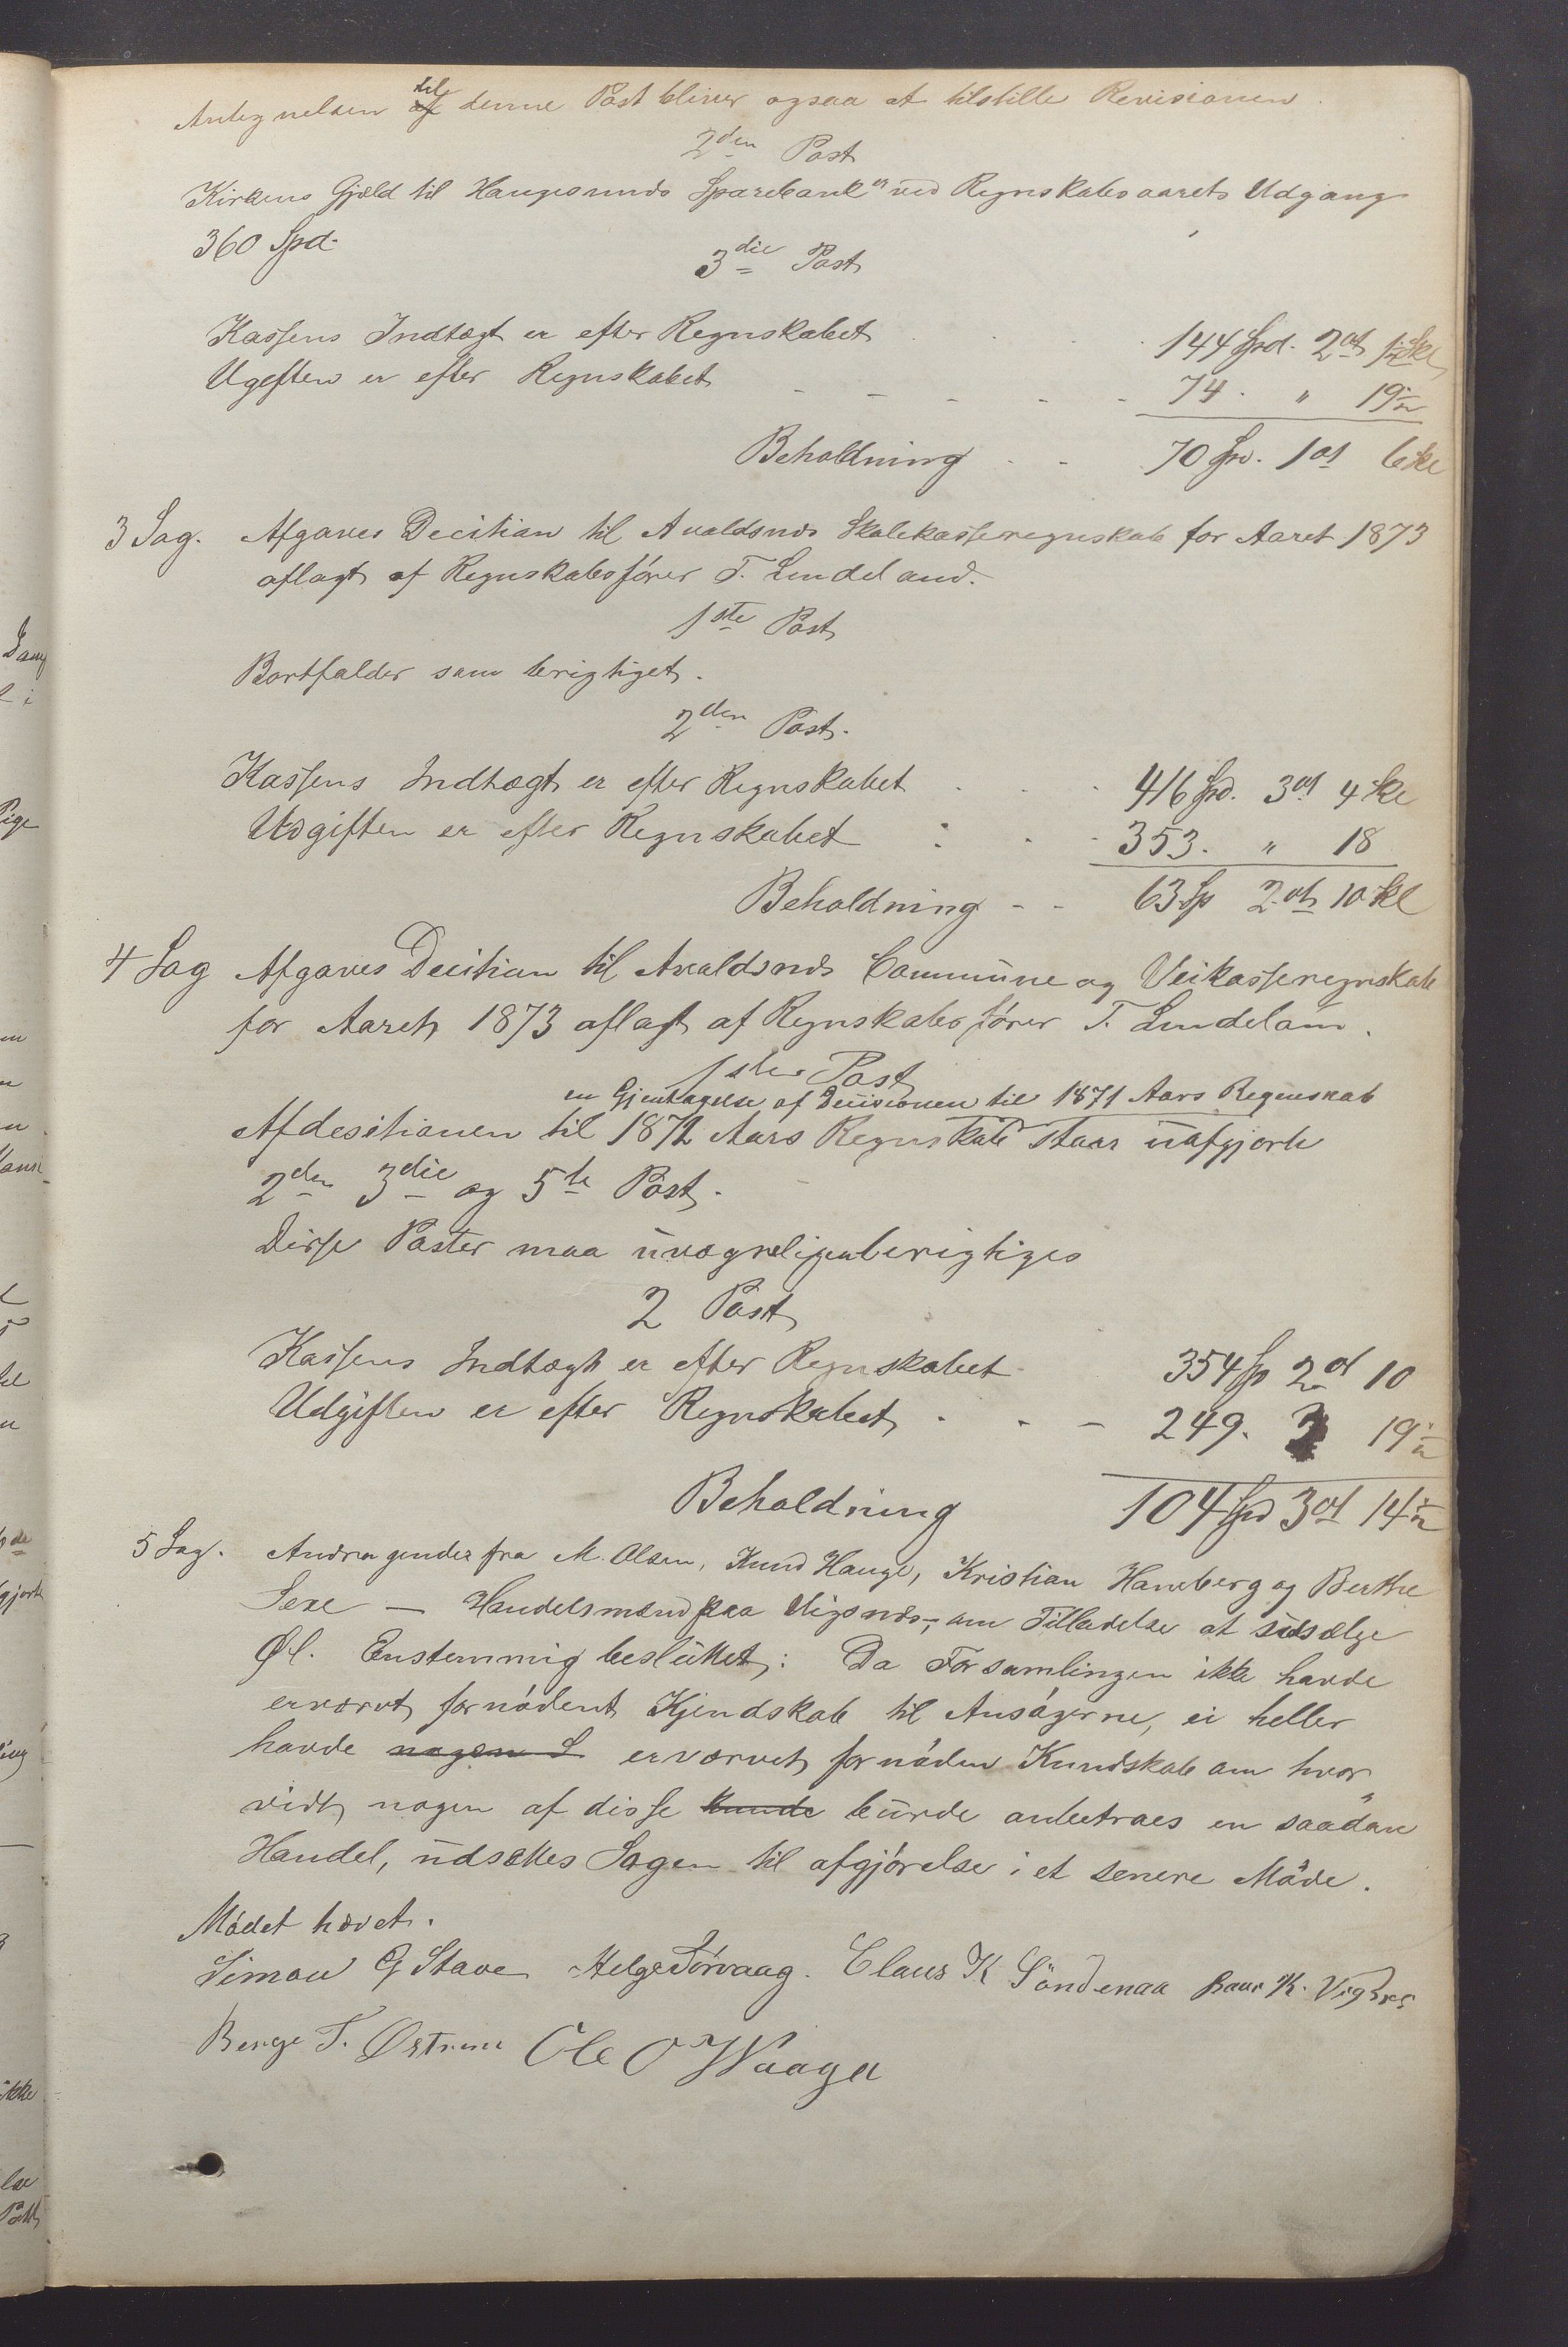 Antegnelsen til denne Post bliver ogsaa at tilstille Revisionen.
2den Post
Kirkens Gjæld til Haugesunds Sparebank er ved Regnskabsaarets Udgang
360 Spd.
3die Post
Kassens Indtægt er efter Regnskabet . . . . 144 Spd. 2 ort 1½ Skl
Ugeften er efter Regnskabet - - - - - 74. " 19½
Beholdning - - 70 Spd. 1 ort 6 Skl
3 Sag. Afgaves Decition til Avaldsnds Skolekasseregnskab for Aaret 1873
aflagt af Regnskabsfører T. Lindeland.
1ste Post
Bortfalder som berigtiget.
2den Post.
Kassens Indtægt er efter Regnskabet . . . 416 Spd. 3 ort 4 Skl
Udgiften er efter Regnskabet . . . 353. " 18
Beholdning - - 63 Sp 2 ort 10 Skl
4 Sag Afgaves Decition til Avaldsnds Commune og Veikasseregnskab
for Aaret 1873 aflagt af Regnskabsfører T. Lindeland.
1ste Post
en Gjentagelse af Decisionen til 1871 Aars Regnskab
Af desitionen til 1872 Aars Regnskab staar uafgjorte
2den 3die og 5te Post.
Disse Poster maa uvægreligen berigtiges
2 Post
Kassens Indtægt er efter Regnskabet 354 Sp 2 ort 10
Udgiften er efter Regnskabet . . - 249. 3 19½
Beholdning 104 Spd 3 ort 14½
5 Sag. Andragender fra M. Olsen, Knud Hauge, Kristian Hamberg og Berthe
Sexe — Handelsmænd paa Vigsnds -, om Tilladelse at udsælge
Øl. Enstemmig besluttet: Da Forsamlingen ikke havde
erværvt fornødent Kjendskab til Ansøgerne, ei heller
havde nogen S erværvet fornøden Kundskab om hvor
vidt nogen af disse kunde burde anbetroes en saadan
Handel, udsættes Sagen til afgjørelse i et senere Møde.
Mødet hævet.
Simon G Stave Helge Sørvaag. Claus K Søndenaa Baar K. Vigsnes
Berge T. Østrem Ole O Waage